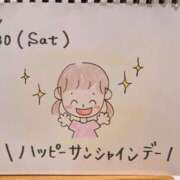 30(Sat)
\ハッピーサンシャインデー/